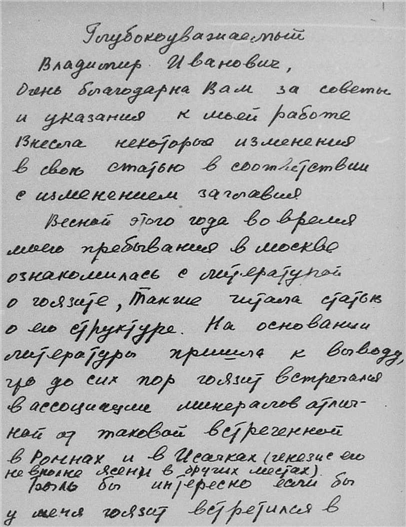 Глубокоуважаемый
Владимир Иванович,
Очень благодарна Вам за советы
и указания к моей работе
Внесла некоторые изменения
в свою статью в соответствии
с изменением заглавия
Весной этого года во время
моего пребывания в Москве
ознакомилась с литературой
о гоязите, также читала статью
о его структуре. На основании
литературы пришла к выводу,
что до сих пор гоязит встречался
в ассоциации минералов отлич-
ной от таковой встреченной
в Роннах и в Исачках (генезис его
не вполне ясен и в других местах).
Было бы интересно если бы
у меня гоязит встретился в